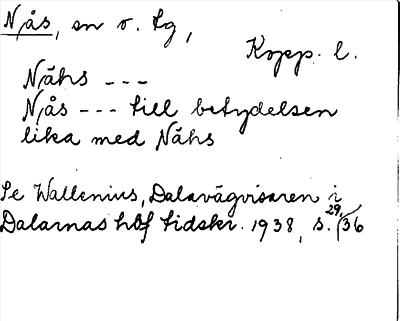 Njås, sn o. tg,
Kopp. l.
Nähs ---
Njås --- till betydelsen
lika med Nähs
Se Wallenius, Dalavägvisaren i
Dalarnas hbf tidskr. 1938, s. 29, 36